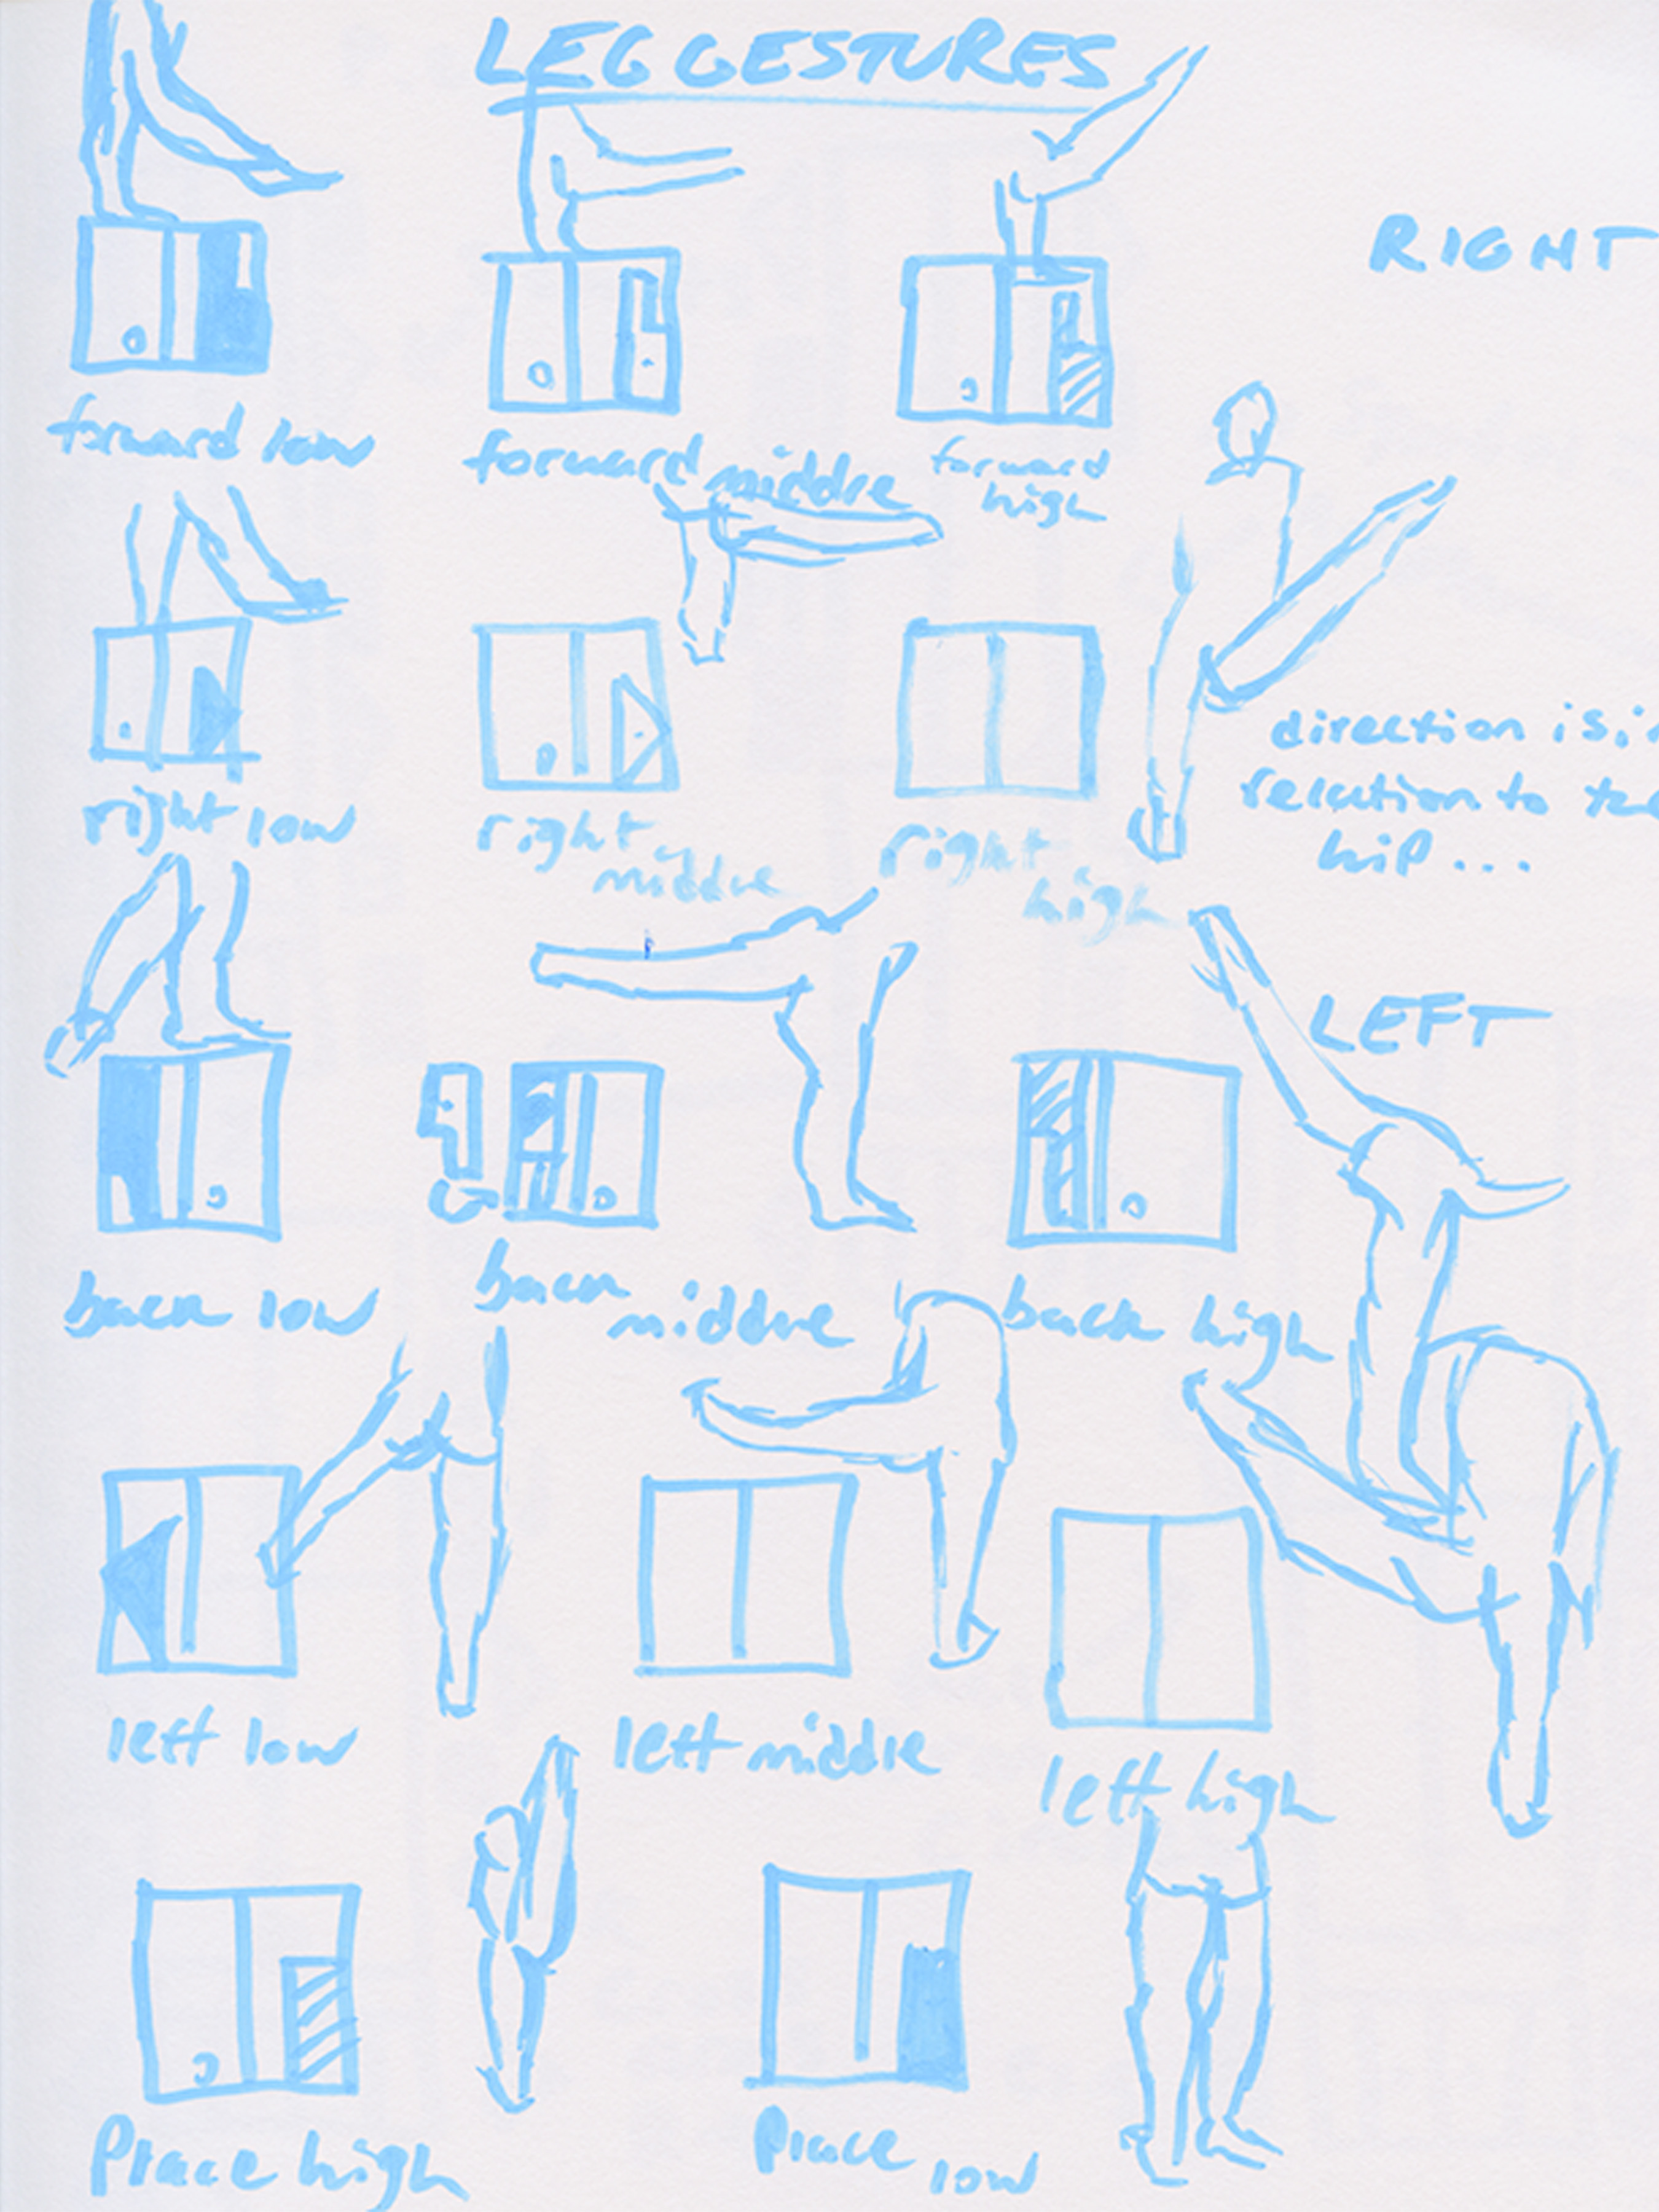 LEG GESTURES
RIGHT
forward low
forward middle
forward
high
right low
right
middle
right
high
direction is i
relation to the
hip...
LEFT
back low
back
middle
back high
left low
left middle
left high
Place high
Place low